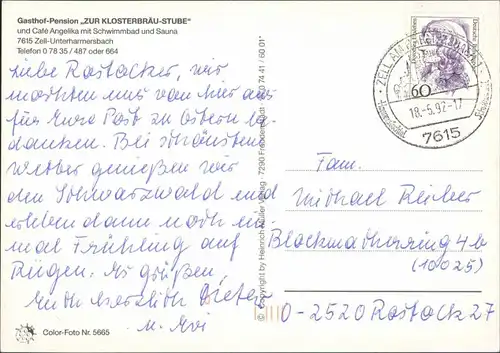 Gasthof-Pension „ZUR KLOSTERBRÄU-STUBE"
und Café Angelika mit Schwimmbad und Sauna
7615 Zell-Unterharmersbach
Telefon 0 78 35 / 487 oder 664
Liebe Rostocker, wir
möchten uns von hier aus
für Eure Post zu Ostern be-
danken. Bei schönstem
Wetter genießen wir
den Schwarzwald und
erleben dann noch ein-
mal Frühling auf
Rügen. Es grüßen
Euch herzlich Dieter
u. Evi
Color-Foto Nr. 5665
© Copyright by Heinrich Müller Verlag · 7290 Freudenstadt · 0 74 41 / 60 01
60
ZELL AM
18.-5.92-17
7615
Fam.
Michael Reiber
Blockmacherring 4b
(10025)
O-2520 Rostock 27